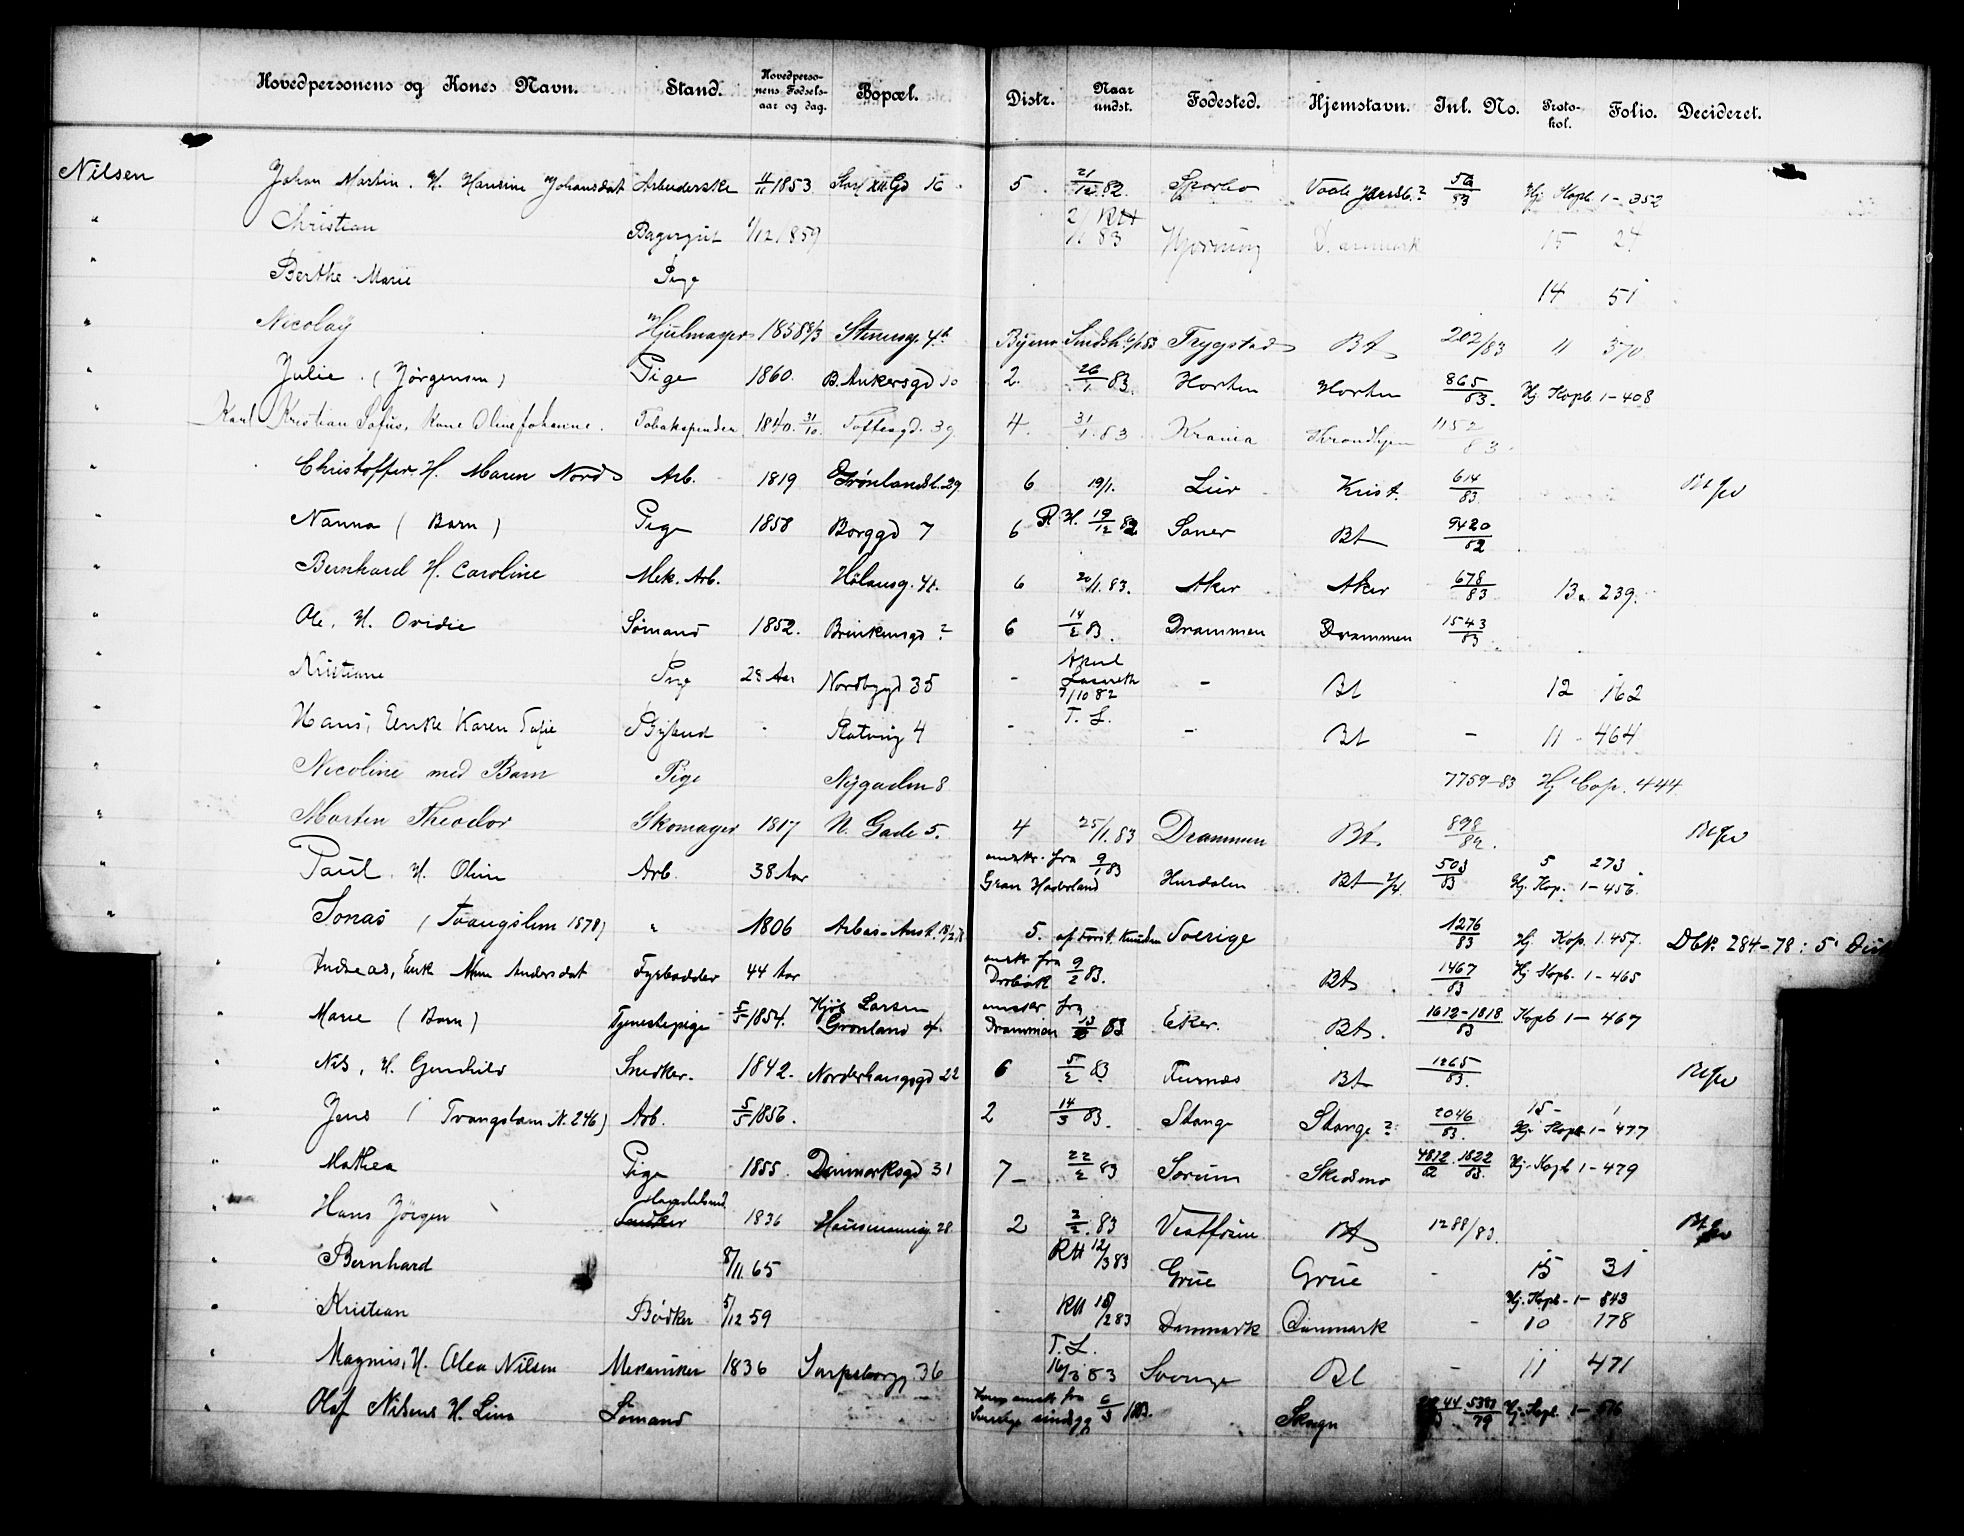 Hovedpersonens og Kones Navn. Stand. Hovedpersonens Fødselsaar og dag. Bopæl. Distr. Naar undst. Fødested. Hjemstavn. Inl. No. Protokol. Folio. Decideret.
Nilsen Johan Martin. H. Hansine Johansdat Arbeiderske 11/11 1853 Gd 16 5 21/12 82 56/83 Hj Kopb. 1 - 352
" Christian Bagergut 1/12 1859 2/11 83 RH Hjørring Danmark 15 24
" Berthe Marie Pige 14 51
" Nicolay Hjulmager 1858 8/3 Stenersg. 4 Trygstad Bt 202/83 11 370
" Julie. (Jørgensen) Pige 1860. B. Ankersgd 10 2. 26/1 83. Horten Horten 865/83. Hj Kopb. 1 - 408
" Karl Kristian Sofus, Kone Oline Johanne. Tobakspinder 1840. 31/10. Toftesgd. 39 4. 31/1. 83. Krania Throndhjem 1152/83.
" Christoffer H. Maren Nord Arb. 1819 Grønlandsl. 29. 6 19/1. Lier Krist. 614/83
" Nanna (Barn) Pige 1858 Borggd 7 6 R. H. 19/12 82 Saner Bt 9420/82
" Bernhard H. Caroline Mek. Arb. Hølansg. 4 6 20/1. 83. Aker Aker 678/83 13. 239.
" Ole, H. Ovidie Sømand 1852. Brinkensgd ? 6 14/2 83. Drammen Drammen 1543/83.
" Kristiane Pige 28 Aar Nordbygd 35 - Lazareth 7/10 82 - Bt 12 162
" Hans, Enke Karen Sofie Bybud - 4 - T. L. - Bt - 11 464
" Nicoline med Barn Pige Nygaden 8 7759-83 Hj Cop. 444
" Morten Theodor Skomager 1817 N. Gade 5. 4 25/1. 83 Drammen Bt. 898/82.
" Paul, H. Oline Arb. 38 Aar undst. fra Gran Haderland 9/1 83 Hurdalen Bt 503/83 5 273 Hj. Kop. 1 - 456.
" Jonas (Tvangslem 1878) " 1806 Arbeis-Anst. 5. af Forst. Sverige 1276/83 Hj. Kop. 1. 457. Dbk. 284-78: 5' Dist
" Andreas, Enk Andersdat Fyrbødder 44 Aar undst fra Drøbak 9/2 83. Bt 1467/83 Hj Kopb. 1 - 465
" Marie (Barn) Tjenestepige 5/5 1854. Hjøs Larsen Grønland 4. undst. fra Drammen 83 Eker. Bt. 1612-1818/83 Kopb 1 - 467
" Nils, H. Gunhild Snedker. 1842. Norderhaugsgd 22 6 5/2 83 Furnæs Bt 1265/83.
" Jens (Tvangslem N. 246) Arb. 5/5 1856. 2 14/3 83. Stange Stange? 2046/83. 15 - 1 Hj. Kopb 1 - 477
" Mathea Pige 1855 Danmarksgd 31 7 - 22/2 83 Sørum Skedsmo 4812/82. 1822/83. Hj. Kopb 1 - 479
" Hans Jörgen Snedker 1836 Hausmannsg. 28. 2 2/2. 83 Vestfosen Bt 1288/83.
" Bernhard 8/11. 65 RH 12/3 83 Grue Grue - 15 31
" Kristian Bødker 5/12 59 - RH 15/2 83 Danmark Danmark - Hj. Kopb - 1 - 543 10 178
" Magnus, H. Olea Nilsen Mekaniker 1836 Sarpsborgg 36 T. L. 16/3 83 Sverige Bt - 11 471
" Olaf Nilsens H. Lina Sømand undst fra 6/3 83. Skogn 5383/79 Hj. Kopb. 1 - 516